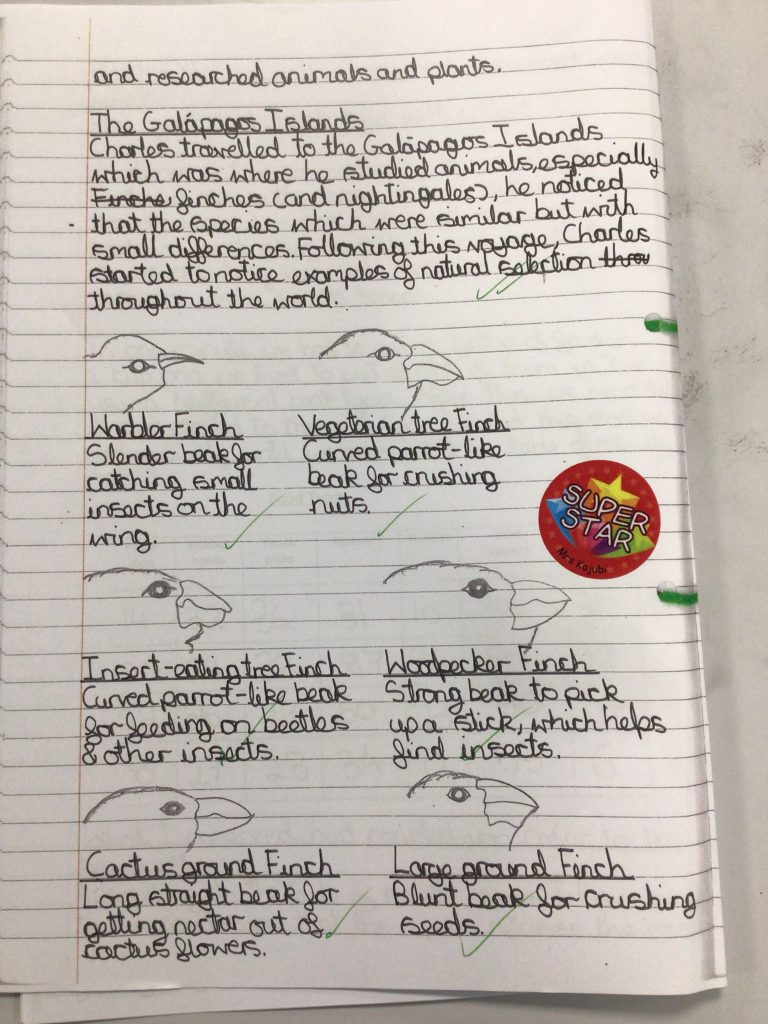 and researched animals and plants.
The Galápagos Islands
Charles travelled to the Galápagos Islands
which was where he studied animals, especially
Finche finches (and nightingales), he noticed
that the species which were similar but with
small differences. Following this voyage, Charles
started to notice examples of natural selection throu
throughout the world.
Warbler Finch
Slender beak for
catching small
insects on the
wing.
Vegetarian tree Finch
Curved parrot-like
beak for crushing
nuts.
SUPER
STAR
Mrs Kajubi
Insect-eating tree Finch
Curved parrot-like beak
for feeding on beetles
& other insects.
Woodpecker Finch
Strong beak to pick
up a stick, which helps
find insects.
Cactus ground Finch
Long straight beak for
getting nectar out of
cactus flowers.
Large ground Finch
Blunt beak for crushing
seeds.